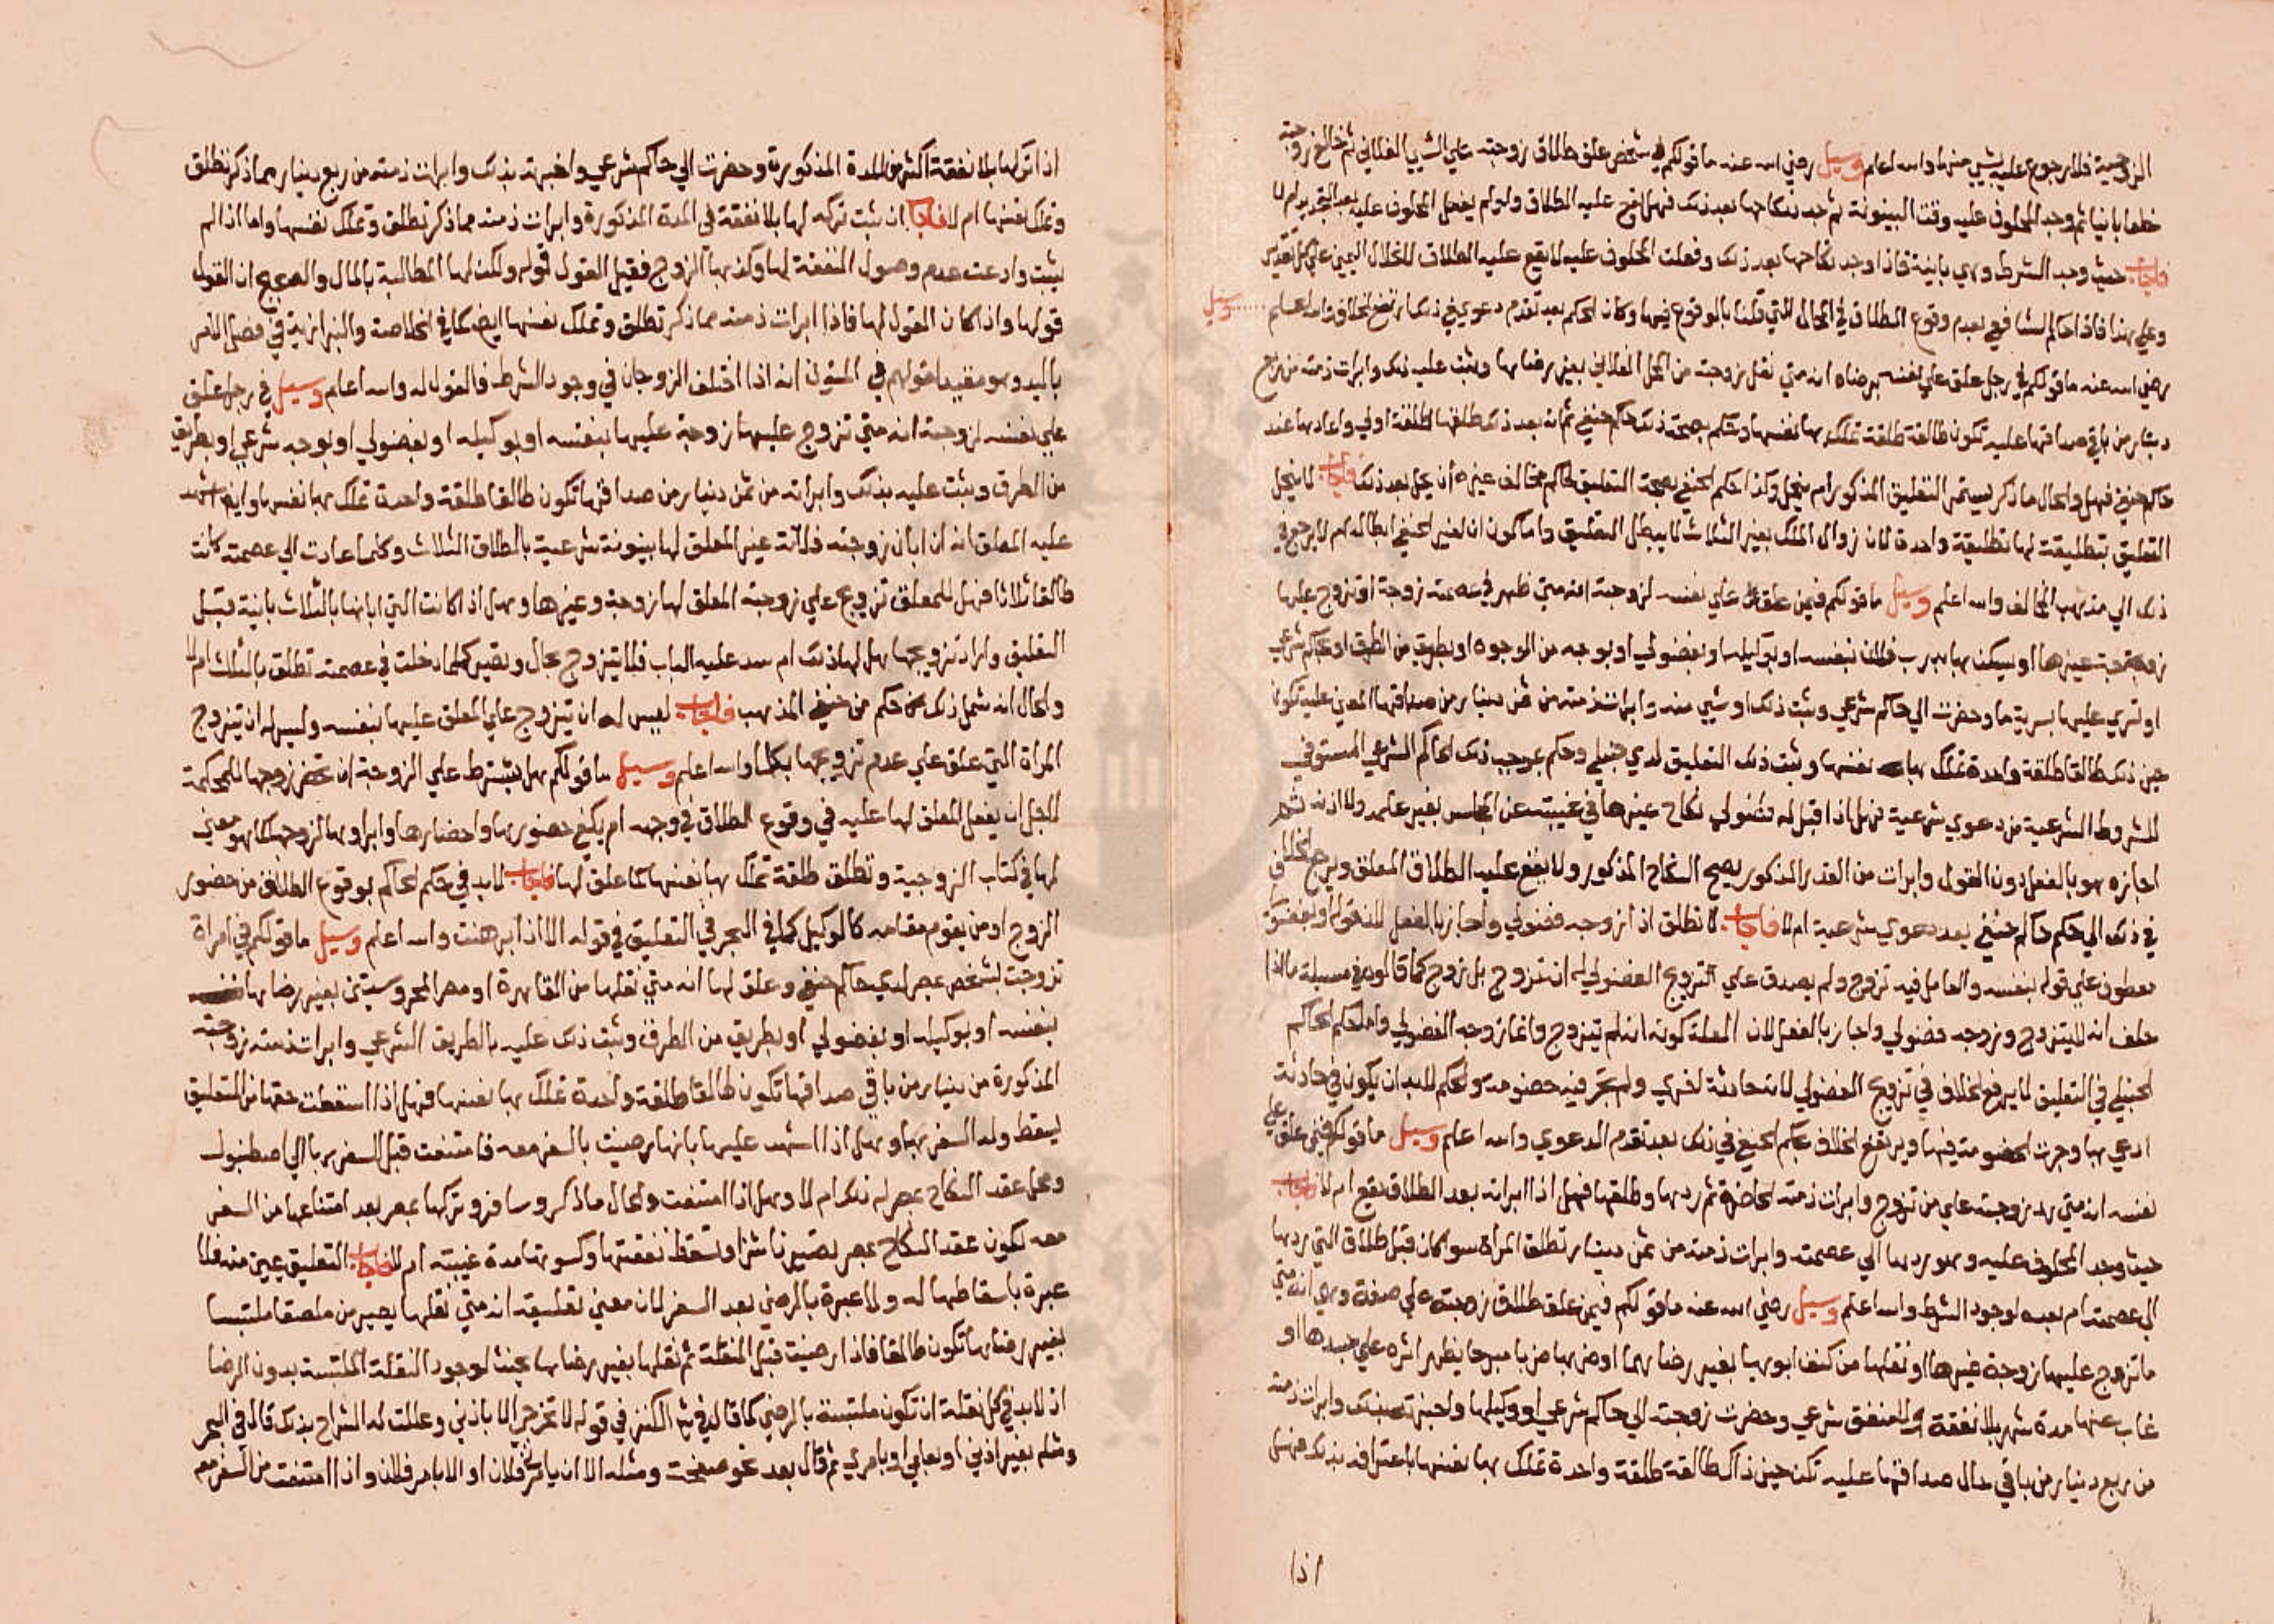 الزوجية فلا رجوع عليه بشي منها والله اعلم وسيل رضي الله عنه ما قولكم في شخص علق طلاق زوجته علي الشيي الفلاني ثم خالع زوجته
خلعا بائنا ثم وجد المحلوف عليه وقت البينونة ثم جدد نكاحها بعد ذلك فهل يقع عليه الطلاق ولو لم يفعل المحلوف عليه بعد التجديد ام لا
فاجاب حيث وجد الشرط وهي باينة فاذا وجد نكاحها بعد ذلك وفعلت المحلوف عليه لا يقع عليه الطلاق لانحلال اليمين علي كل تقدير
وعلي هذا فاذا حكم الشافعي بعدم وقوع الطلاق في الحال التي قلنا بالوقوع فيها وكان الحكم بعد تقدم دعوي في ذلك ارتفع الخلاف والله اعلم وسيل
رضي الله عنه ما قولكم في رجل علق علي نفسه برضاه انه متي نقل زوجته من المحل الفلاني بغير رضاها وثبت عليه ذلك وابرات ذمته من ربع
دينار من باقي صداقها عليه تكون طالقة طلقة تملك بها نفسها وحكم بصحة ذلك حاكم حنفي ثم انه بعد ذلك طلقها طلقة اولي واعادها عند
حاكم حنفي فهل والحال ما ذكر يستمر التعليق المذكور ام ينحل وكذا حكم الحنفي بصحة التعليق لحاكم مخالف غيره ان يحل بعد ذلك فاجاب لا ينحل
التعليق بتطليقة لها تطليقة واحدة لان زوال الملك بغير الثلاث لا يبطل التعليق واما كون ان لغير الحنفي ابطاله ام لا يرجع في
ذلك الي مذهب المخالف والله اعلم وسيل ما قولكم فيمن علق علي نفسه لزوجته انه متي ظهر في عصمته زوجة او تزوج عليها
زوجة غيرها او يسكن بها بدرب فلان بنفسه او بوكيله او بفضولي او بوجه من الوجوه او بطريق من الطرق او بحكم شرعي
او تسري عليها بسرية ما وحضرت الي حاكم شرعي وثبت ذلك او شيي منه وابرات ذمته من ثمن دينار من صداقها المعين عليه تكون
حين ذلك طالقا طلقة واحدة تملك بها نفسها وثبت ذلك التعليق لدي حنبلي وحكم بموجب ذلك الحاكم الشرعي المستوفي
للشروط الشرعية من دعوي شرعية فهل اذا قبل له فضولي نكاح غيرها في غيبته عن المجلس بغير علمه ولا اذنه ثم
اجازه هو بالفعل دون القول وابرات من القدر المذكور يصح النكاح المذكور ولا يقع عليه الطلاق المعلق ويرجع الخلاف
في ذلك الي حكم حاكم حنفي بعد دعوي شرعية ام لا فاجاب لا تطلق اذا زوجه فضولي واجاز بالفعل لان قوله او بفضولي
معطوف علي قوله بنفسه والعامل فيه تزوج ولم يصدق علي التزويج الفضولي له انه تزوج بل زوج كما قالوه في مسيلة ما اذا
حلف انه لا يتزوج وزوجه فضولي واجاز بالفعل لان العلة كونه انه لم يتزوج وانما زوجه الفضولي واما حكم الحاكم
الحنبلي في التعليق لا يرفع الخلاف في تزويج الفضولي لانه حادثة اخري ولم تجر فيه خصومة والحكم لا بد ان يكون في حادثة
ادعي بها وجرت الخصومة فيها ويرتفع الخلاف بحكم الحنفي في ذلك بعد تقدم الدعوي والله اعلم وسيل ما قولكم فيمن علق علي
نفسه انه متي رد زوجته علي من تزوج وابرات ذمته الحاضرة ثم ردها وطلقها فهل اذا ابراته بعد الطلاق يقع ام لا فاجاب
حيث وجد المحلوف عليه وهو ردها الي عصمته وابرات ذمته من ثمن دينار تطلق المراة سوا كان قبل طلاق التي ردها
الي عصمته ام بعده لوجود الشرط والله اعلم وسيل رضي الله عنه ما قولكم فيمن علق طلاق زوجته علي صفة وهي انه متي
ما تزوج عليها زوجة غيرها او نقلها من كنف ابويها بغير رضاهما او ضربها ضربا مبرحا يظهر اثره علي جسدها او
غاب عنها مدة شهر بلا نفقة ولا منفق شرعي وحضرت زوجته الي حاكم شرعي او وكيلها واخبرته بذلك وابرات ذمته
من ربع دينار من باقي حال صداقها عليه تكن حين ذاك طالقة طلقة واحدة تملك بها نفسها باعترافه بذلك فهل
اذا
اذا تركها بلا نفقة اكثر من المدة المذكورة وحضرت الي حاكم شرعي واخبرته بذلك وابرات ذمته من ربع دينار مما ذكر تطلق
وتملك نفسها ام لا فاجاب ان ثبت تركه لها بلا نفقة في المدة المذكورة وابرات ذمته مما ذكر تطلق وتملك نفسها واما اذا لم
يثبت وادعت عدم وصول النفقة لها وكذبها الزوج فقيل القول قوله ولكن لها المطالبة بالمال والصحيح ان القول
قولها واذا كان القول لها فاذا ابرات ذمته مما ذكر تطلق وتملك نفسها ايضا كما في الخلاصة والبزازية في فصل الامر
باليد وهو مقيد لقولهم في المتون انه اذا اختلف الزوجان في وجود الشرط فالقول له والله اعلم وسيل في رجل علق
علي نفسه لزوجته انه متي تزوج عليها زوجة عليها بنفسه او بوكيله او بفضولي او بوجه شرعي او بطريق
من الطرق وثبت عليه بذلك وابراته من ثمن دينار من صداقها تكون طالقا طلقة واحدة تملك بها نفسها وايضا اشهد
عليه المعلق انه ان ابان زوجته فلانة غير المعلق لها بينونة شرعية بالطلاق الثلاث وكلما عادت الي عصمته كانت
طالقا ثلاثا فهل للمعلق تزويج علي زوجته المعلق لها زوجة وغيرها وهل اذا كانت التي ابانها بالثلاث باينة قبل
التعليق واراد تزويجها هل لها ذلك ام سد عليه الباب فلا يتزوج بحال ويصير كلما دخلت في عصمته تطلق بالثلاث ام لا
والحال انه شمل ذلك حكم من حنفي المذهب فاجاب ليس له ان يتزوج علي المعلق عليها بنفسه وليس له ان يتزوج
المراة التي علق علي عدم تزويجها بكلما والله اعلم وسيل ما قولكم هل يشترط علي الزوجة ان تحضر زوجها للمحكمة
لاجل ان يفعل المعلق لها عليه في وقوع الطلاق في وجهه ام يكفي حضورها واحضارها وابراوها لزوجها كما هو معين
لها في كتاب الزوجية وتطلق طلقة تملك بها نفسها كما علق لها فاجاب لا بد في حكم الحاكم بوقوع الطلاق من حضور
الزوج او من يقوم مقامه كالوكيل كما في البحر في التعليق في قوله الا اذا برهنت والله اعلم وسيل ما قولكم في امراة
تزوجت بشخص بمصر لدي حاكم حنفي وعلق لها انه متي نقلها من القاهرة او مصر المحروستين بغير رضاها
بنفسه او بوكيله او بفضولي او بطريق من الطرق وثبت ذلك عليه بالطريق الشرعي وابرات ذمته زوجته
المذكورة من دينار من باقي صداقها تكون طالقا طلقة واحدة تملك بها نفسها فهل اذا اسقطت حقها من التعليق
يسقط وله السفر بها وهل اذا اشهد عليها بانها رضيت بالسفر معه فامتنعت قبل السفر بها الي اصطنبول
ومحل عقد النكاح بمصر له ذلك ام لا وهل اذا امتنعت والحال ما ذكر وسافر وتركها بمصر بعد امتناعها من السفر
معه لكون عقد النكاح بمصر تصير ناشزا وتسقط نفقتها وكسوتها مدة غيبته ام لا فاجاب التعليق يمين منه فلا
عبرة باسقاطها له ولا عبرة بالرضي بعد السفر لان معني تعليقه انه متي نقلها بمصر من ملصقا ملتبسا
بغير رضاها تكون طالقا فاذا رضيت قبل النقلة ثم نقلها بغير رضاها يحنث لوجود النقلة الملتبسة بدون الرضا
اذ لا بد في كل نقلة ان تكون ملتبسة بالرضي كما قال في شرح الكنز في قوله لا تخرجي الا باذني وعللت له الشراح بذلك قال في البحر
ومثله بغير اذني او بعلمي او بامري ثم قال بعد نحو صفحة ومثله الا ان يامر فلان او الا بامر فلان واذا امتنعت من السفر معه